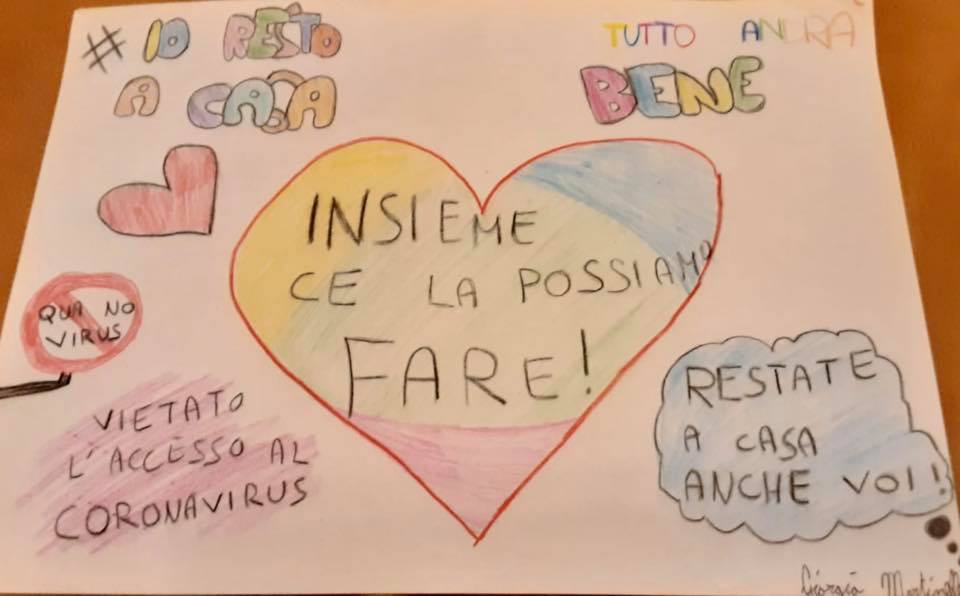 # IO RESTO
A CASA
TUTTO ANDRA
BENE
INSIEME
CE LA POSSIAMO
FARE!
QUA NO
VIRUS
VIETATO
L'ACCESSO AL
CORONAVIRUS
RESTATE
A CASA
ANCHE VOI!